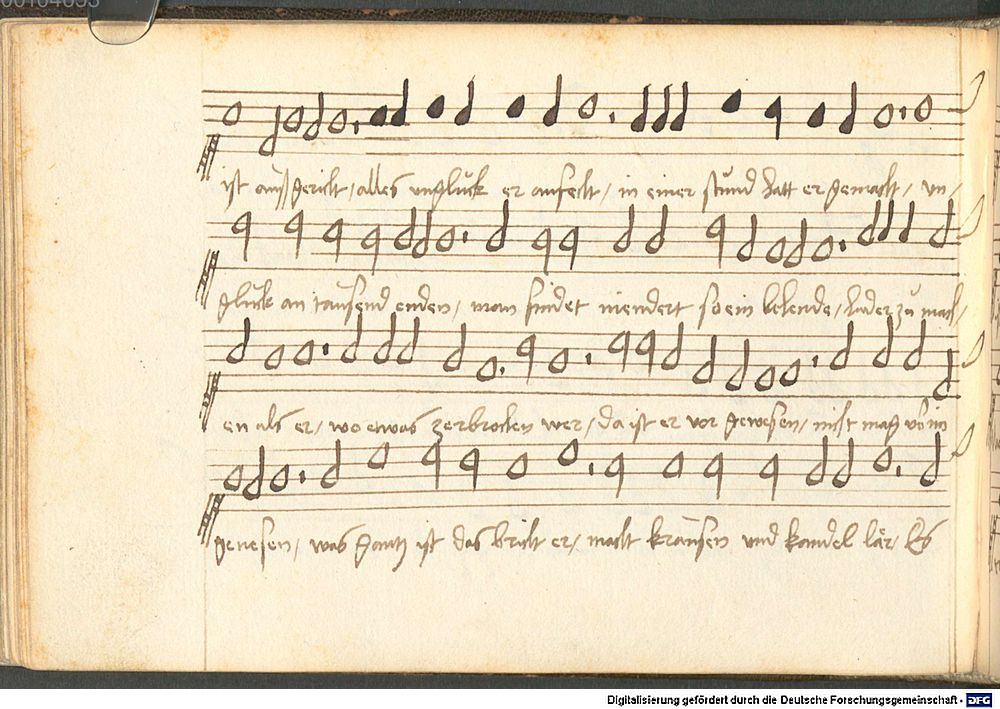 00104633
ist auß gericht / alles unglück er anfecht / in einer stund hatt er gemacht / un-
glück an tausend enden / man findet niendert so ein behende / hader zu mach-
en als er / wo etwas zerbrochen wer / da ist er vor gewesen / nicht mag vor im
genesen / was gantz ist das bricht er / macht krausen und kandel lär / Es
Digitalisierung gefördert durch die Deutsche Forschungsgemeinschaft - DFG